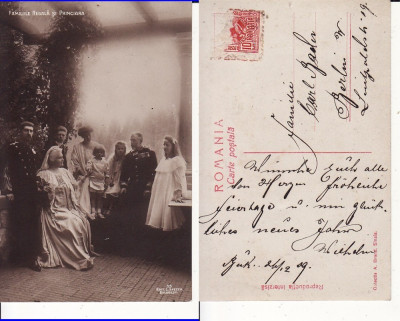 FAMILIILE REGALĂ ȘI PRINCIARĂ
10
Familie
Carl Bader
Berlin W
19.
ROMANIA
Carte poștală
Wünsche Euch alle
von Herzen fröhliche
Feiertage u. ein glück-
liches neues Jahr
Wilhelm
Buk. 24/12 09.
Reproducția interzisă